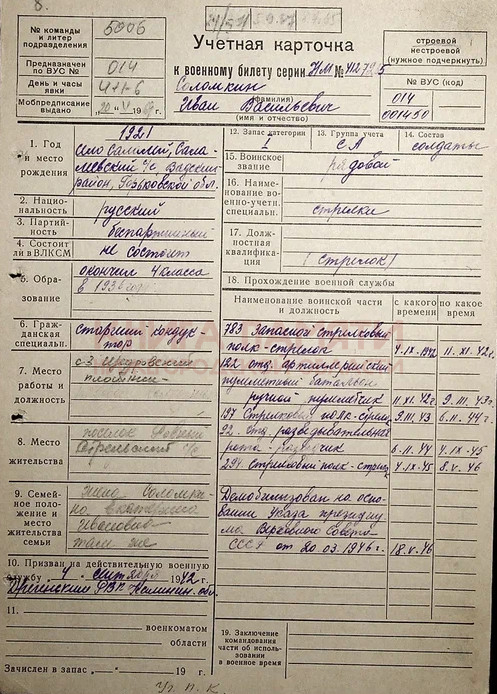 8.
№ команды и литер подразделения 5906
Предназначен по ВУС № 014
День и часы явки 4+1-6
Мобпредписание выдано „20" V 19 г.
Учетная карточка
к военному билету серии НМ №
Соломкин
(фамилия)
Иван Васильевич
(имя и отчество)
строевой
нестроевой
(нужное подчеркнуть)
№ ВУС (код)
014
001450
1. Год и место рождения
1921
село Салалей, Сала-
леевский с/с, Вадский
район, Горьковской обл.
2. Национальность русский
3. Партийность беспартийный
4. Состоит ли в ВЛКСМ не состоит
5. Образование окончил 4 класса
в 1936 году
6. Гражданская специальн. старший кондук-
тор
7. Место работы и должность
плотник
8. Место жительства поселок
9. Семейное положение и место жительства семьи
жена Соломки-
на Екатерина
Ивановна
там же
10. Призван на действительную военную
службу 4 сентября 1942 г.
РВК Калинин. обл.
11.
военкоматом
области
Зачислен в запас „ " 19 г.
12. Запас категории I
13. Группа учета СА
14. Состав солдаты
15. Воинское звание рядовой
16. Наименование военно-учетн. специальн. стрелки
17. Должностная квалификация (стрелок)
18. Прохождение военной службы
Наименование воинской части и должность
с какого времени
по какое время
783 Запасной стрелковый
полк-стрелок 4.IX.1942 11.XI.42г.
182 отд. артиллерийский
пулеметный батальон
ручной пулеметчик 11.XI.42г. 9.III.43г.
197 Стрелковый полк-стрелок 9.III.43 6.11.44г.
92 отд. разведывательная
рота-разведчик 6.11.44 4.IX.45
294 стрелковый полк-стрелок 4.IX.45 8.V.46
Демобилизован на осно-
вании Указа президиу-
ма Верховного Совета
СССР от 20.03.1946г. 18.V.46
19. Заключение командования части об использовании в военное время